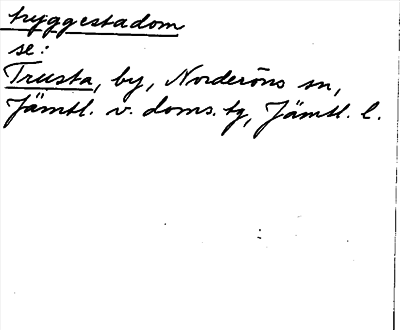 tryggestadom
se:
Trusta, by, Norderöns sn,
Jämtl. v. doms. tg, Jämtl. l.